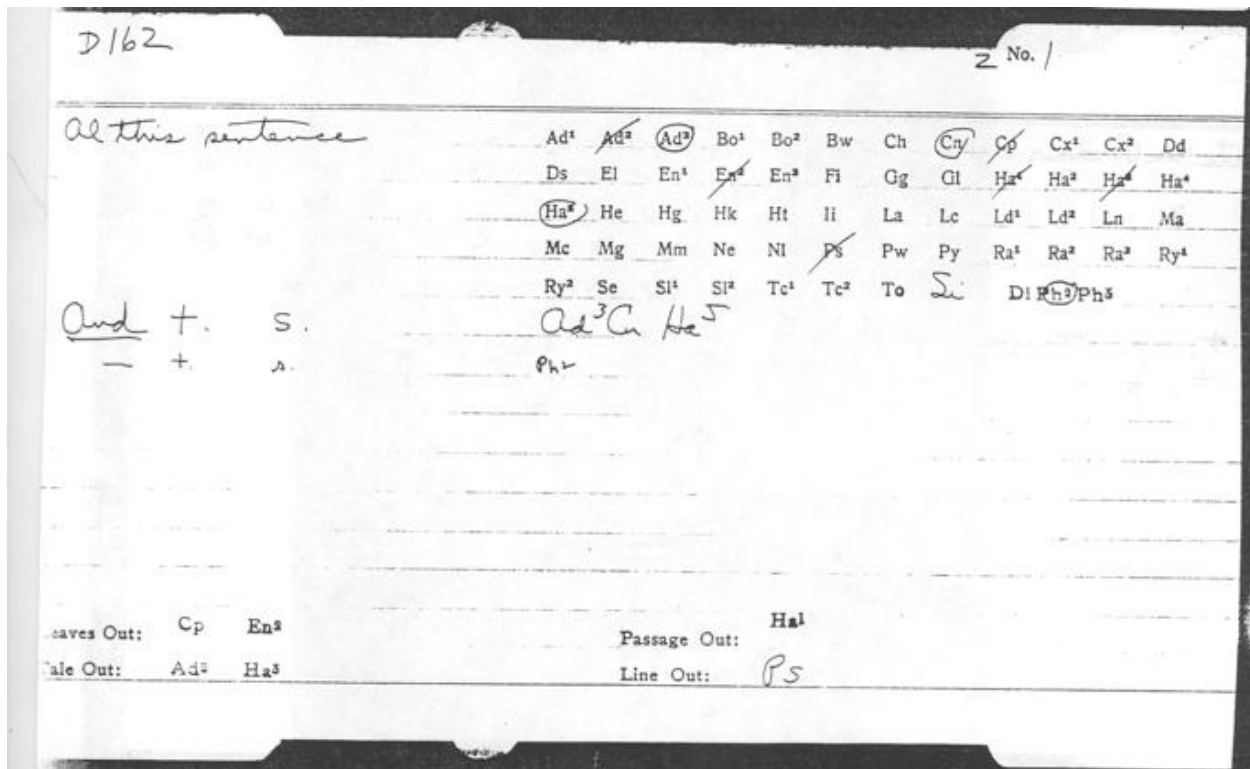 D162
2 No. 1
Al this sentence
Ad¹ Ad² Ad³ Bo¹ Bo² Bw Ch Cn Cp Cx¹ Cx² Dd
Ds El En¹ En² En³ Fi Gg Gl Ha¹ Ha² Ha³ Ha⁴
Ha⁵ He Hg Hk Ht Ii La Lc Ld¹ Ld² Ln Ma
Mc Mg Mm Ne Nl Ps Pw Py Ra¹ Ra² Ra³ Ry¹
Ry² Se Sl¹ Sl² Tc¹ Tc² To Si Dl Ph² Ph³
And t. s. Ad³ Cn Ha⁵
— t. s. Ph²
eaves Out: Cp En² Passage Out: Ha¹
ale Out: Ad² Ha³ Line Out: Ps